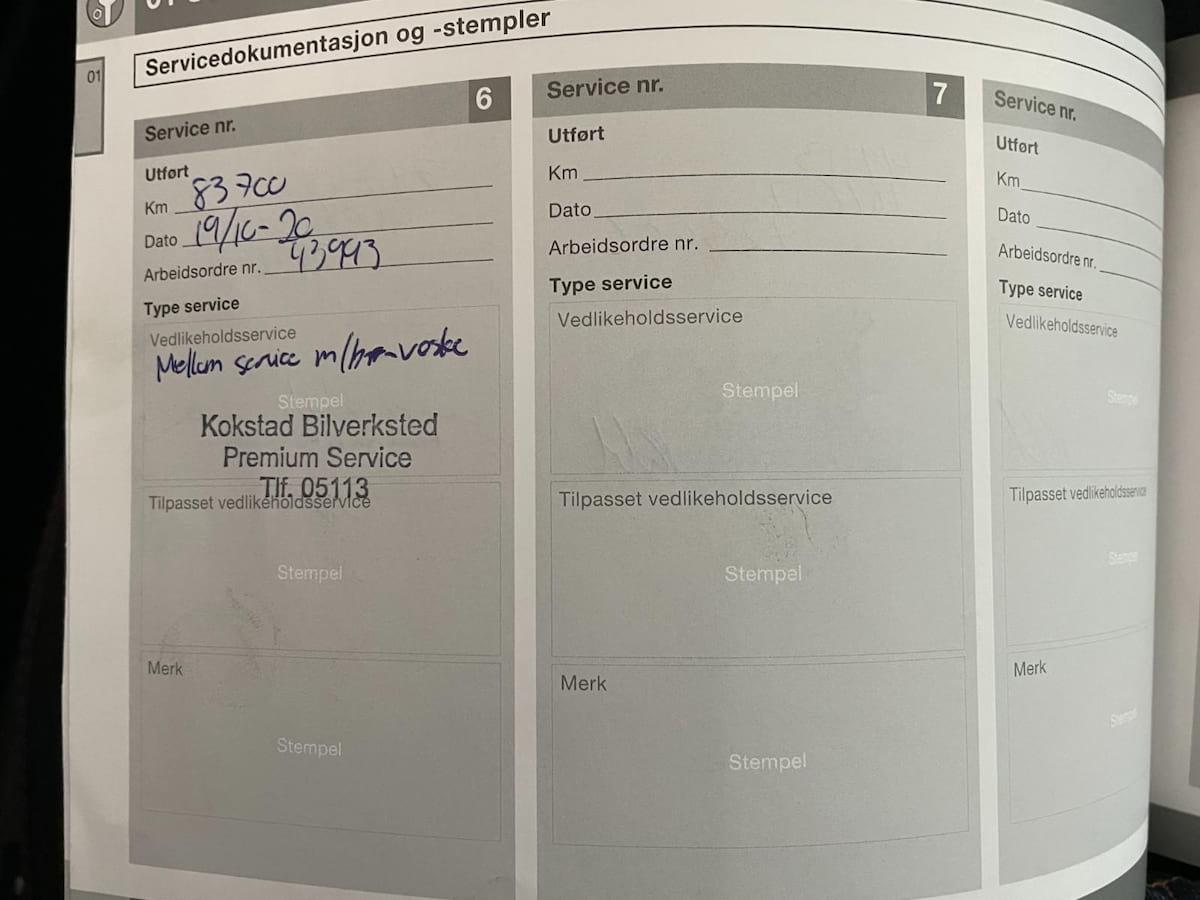 01
Servicedokumentasjon og -stempler
Service nr. 6
Utført
Km 83700
Dato 19/10-20
Arbeidsordre nr. 43993
Type service
Vedlikeholdsservice
Mellom service m/ væske
Stempel
Kokstad Bilverksted
Premium Service
Tlf. 05113
Tilpasset vedlikeholdsservice
Stempel
Merk
Stempel
Service nr. 7
Utført
Km
Dato
Arbeidsordre nr.
Type service
Vedlikeholdsservice
Stempel
Tilpasset vedlikeholdsservice
Stempel
Merk
Stempel
Service nr.
Utført
Km
Dato
Arbeidsordre nr.
Type service
Vedlikeholdsservice
Stempel
Tilpasset vedlikeholdsservice
Stempel
Merk
Stempel